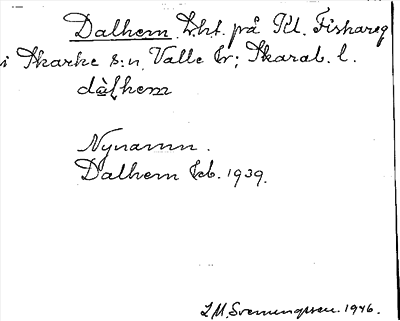 Dalhem. Lht. på Kl. Fiskareg
i Skarke s:n, Valle hr; Skarab. l.
dàlhem
Nynamn.
Dalhem Jeb. 1939.
I.M. Svenungsson. 1946.